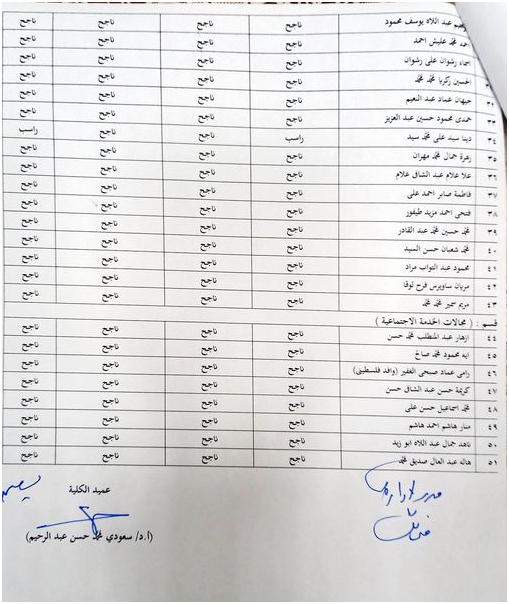 عبد اللاه يوسف محمود ناجح ناجح ناجح ناجح
احمد محمد عليش احمد ناجح ناجح ناجح ناجح
اسماء رشوان على رشوان ناجح ناجح ناجح ناجح
الحسين زكريا محمد محمد ناجح ناجح ناجح ناجح
٣٢ جيهان عماد عبد النعيم ناجح ناجح ناجح ناجح
٣٣ حمدى محمود حسين عبد العزيز ناجح ناجح ناجح ناجح
٣٤ دينا سيد على محمد سيد راسب ناجح ناجح راسب
٣٥ زهرة جمال محمد مهران ناجح ناجح ناجح ناجح
٣٦ علا علام عبد الشافى علام ناجح ناجح ناجح ناجح
٣٧ فاطمة صابر احمد على ناجح ناجح ناجح ناجح
٣٨ فتحى احمد مزيد طيفور ناجح ناجح ناجح ناجح
٣٩ محمد حسين محمد عبد القادر ناجح ناجح ناجح ناجح
٤٠ محمد شعبان حسن السيد ناجح ناجح ناجح ناجح
٤١ محمود عبد التواب مراد ناجح ناجح ناجح ناجح
٤٢ مريان ساويرس فرح لوقا ناجح ناجح ناجح ناجح
٤٣ مريم سمير محمد محمد ناجح ناجح ناجح ناجح
قسم : ( مجالات الخدمة الاجتماعية )
٤٤ ازهار عبد المطلب محمد حسن ناجح ناجح ناجح ناجح
٤٥ ايه محمود محمد صالح ناجح ناجح ناجح ناجح
٤٦ رامى عماد صبحى الغفير (وافد فلسطينى) ناجح ناجح ناجح ناجح
٤٧ كريمة حسن عبد الشافى حسن ناجح ناجح ناجح ناجح
٤٨ محمد اسماعيل حسن على ناجح ناجح ناجح ناجح
٤٩ منار هاشم احمد هاشم ناجح ناجح ناجح ناجح
٥٠ ناهد جمال عبد اللاه ابو زيد ناجح ناجح ناجح ناجح
٥١ هاله عبد العال صديق محمد ناجح ناجح ناجح ناجح
عميد الكلية
(ا.د/ سعودي محمد حسن عبد الرحيم)